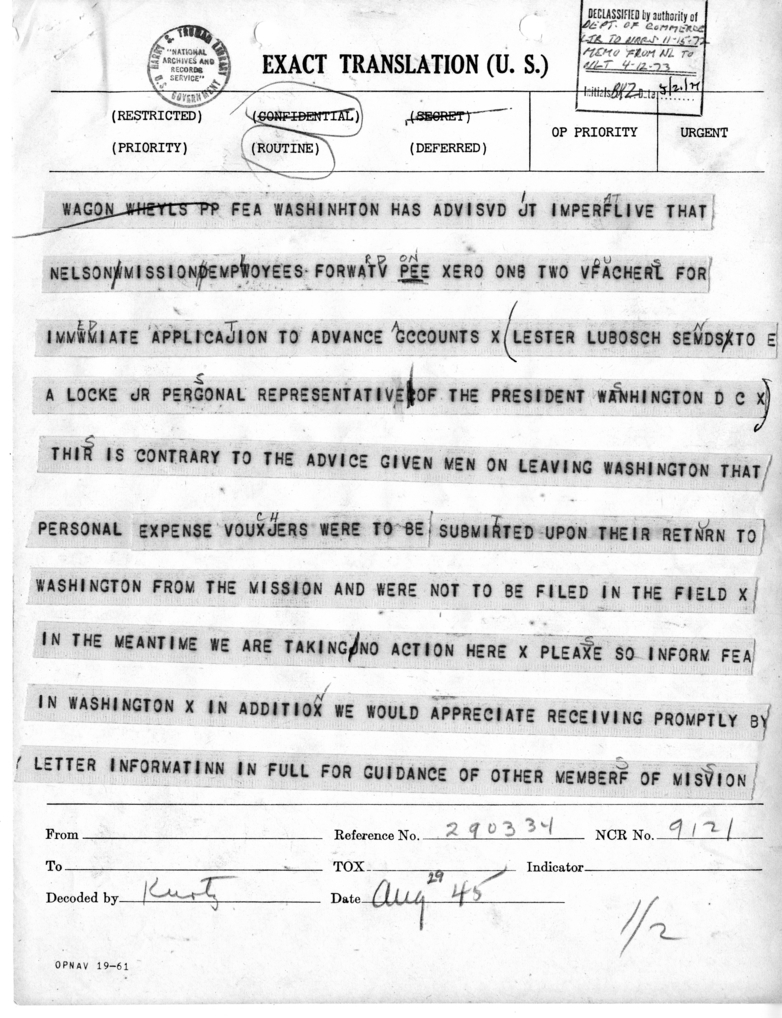 HARRY S. TRUMAN LIBRARY
"NATIONAL
ARCHIVES AND
RECORDS
SERVICE"
U.S. GOVERNMENT
EXACT TRANSLATION (U. S.)
DECLASSIFIED by authority of
DEPT. OF COMMERCE
LTR TO NARS 11-15-72
MEMO FROM NL TO
NLT 4-12-73
Initials Date
(RESTRICTED) (CONFIDENTIAL) (SECRET)
OP PRIORITY URGENT
(PRIORITY) (ROUTINE) (DEFERRED)
WAGON WHEYLS PP FEA WASHINHTON HAS ADVISVD JT IMPERFLIVE THAT
I AT
NELSON MISSION EMPWOYEES FORWATV PEE XERO ONB TWO VFACHERL FOR
RD ON OU S
IMMWMIATE APPLICAJION TO ADVANCE GCCOUNTS X (LESTER LUBOSCH SEMDS TO E
ED T A N
A LOCKE JR PERGONAL REPRESENTATIVE OF THE PRESIDENT WANHINGTON D C X)
S S
THIR IS CONTRARY TO THE ADVICE GIVEN MEN ON LEAVING WASHINGTON THAT
S
PERSONAL EXPENSE VOUXJERS WERE TO BE SUBMIRTED UPON THEIR RETNRN TO
CH T U
WASHINGTON FROM THE MISSION AND WERE NOT TO BE FILED IN THE FIELD X
IN THE MEANTIME WE ARE TAKING NO ACTION HERE X PLEAXE SO INFORM FEA
S
IN WASHINGTON X IN ADDITIOX WE WOULD APPRECIATE RECEIVING PROMPTLY BY
N
LETTER INFORMATINN IN FULL FOR GUIDANCE OF OTHER MEMBERF OF MISVION
S S
From Reference No. 290334 NCR No. 9121
To TOX Indicator
Decoded by Kurtz Date Aug 29 45
1/2
OPNAV 19-61